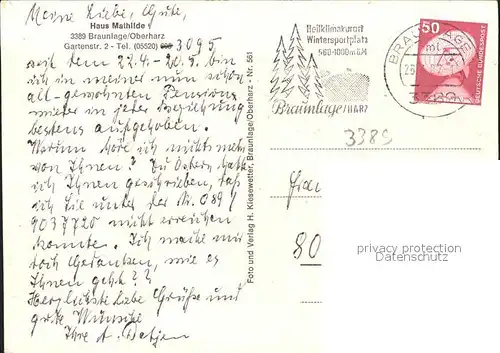 Meine Liebe, Gute,
Haus Mathilde
3389 Braunlage/Oberharz
Gartenstr. 2 - Tel. (05520) 3095
seit dem 22.4. - 20.5. bin
ich in meiner nun schon
alt-gewohnten Pension
wieder in jeder Beziehung
bestens aufgehoben.
Warum höre ich nichts mehr
von Ihnen? Zu Ostern hatte
ich Ihnen geschrieben, daß
ich Sie unter der Nr. 089/
9037720 nicht erreichen
konnte. Ich mache mir
doch Gedanken, wie es
Ihnen geht??
Herzlichste liebe Grüße und
gute Wünsche
Ihre A.
Foto und Verlag H. Kiesewetter, Braunlage/Oberharz - Nr. 561
Heilklimakurort
Wintersportplatz
560-1000 m ü M
Braunlage/HARZ
BRAUNLAGE
3389
50
DEUTSCHE BUNDESPOST
3389
80
privacy protection
Datenschutz